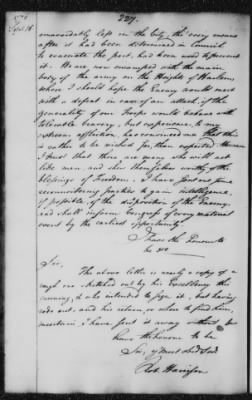 227.
Sept. 16
unavoidably left in the City, tho' every means
after it had been determined in Council
to evacuate the post, had been used to prevent
it. We are now encamped with the main
body of the army on the Heights of Harlem
where I should hope the Enemy would meet
with a defeat in case of an attack, if the
generality of our Troops would behave with
tolerable bravery, but experience, to my
extreme affliction has convinced me that this
is rather to be wished for, than expected. However
I trust that there are many who will act
like men, and shew themselves worthy of the
blessings of Freedom. I have sent out some
reconnoitring parties to gain intelligence
if possible, of the disposition of the Enemy
and shall inform Congress of every material
event by the earliest opportunity.
I have the honour to
be &c
Sir,
The above letter is nearly a copy of a
rough one sketched out by his Excellency this
evening, & who intended to sign it, but having
rode out, and his return, or where to find him,
uncertain I have sent it away without &
have the honour to be
Sir, yr most Obt Svt
Rob. Harrison